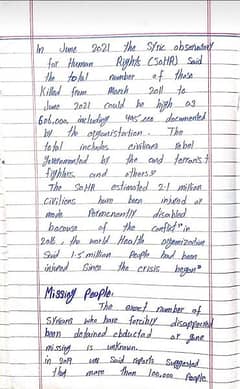 In June 2021 the Syric observatory
for Human Rights (SoHR) Said
the total number of those
Killed from March 2011 to
June 2021 could be high as
606.000 including 495.000 documented
by the organistortion. The
total includes civilians rebel
governmented by the and terrorist
fighters and others
The SoHR estimated 2.1 million
Civilions have been injured or
made Permenently disabled
because of the conflict" in
2016, the world Health organization
Said 1.5 million People had been
injured Since the crisis began"
Missing People:
The exact number of
Syrians who have forcibly disappeared
been detained abducted or gone
missing is unknown.
in 2019 une Said reports suggested
that more than 100,000 People